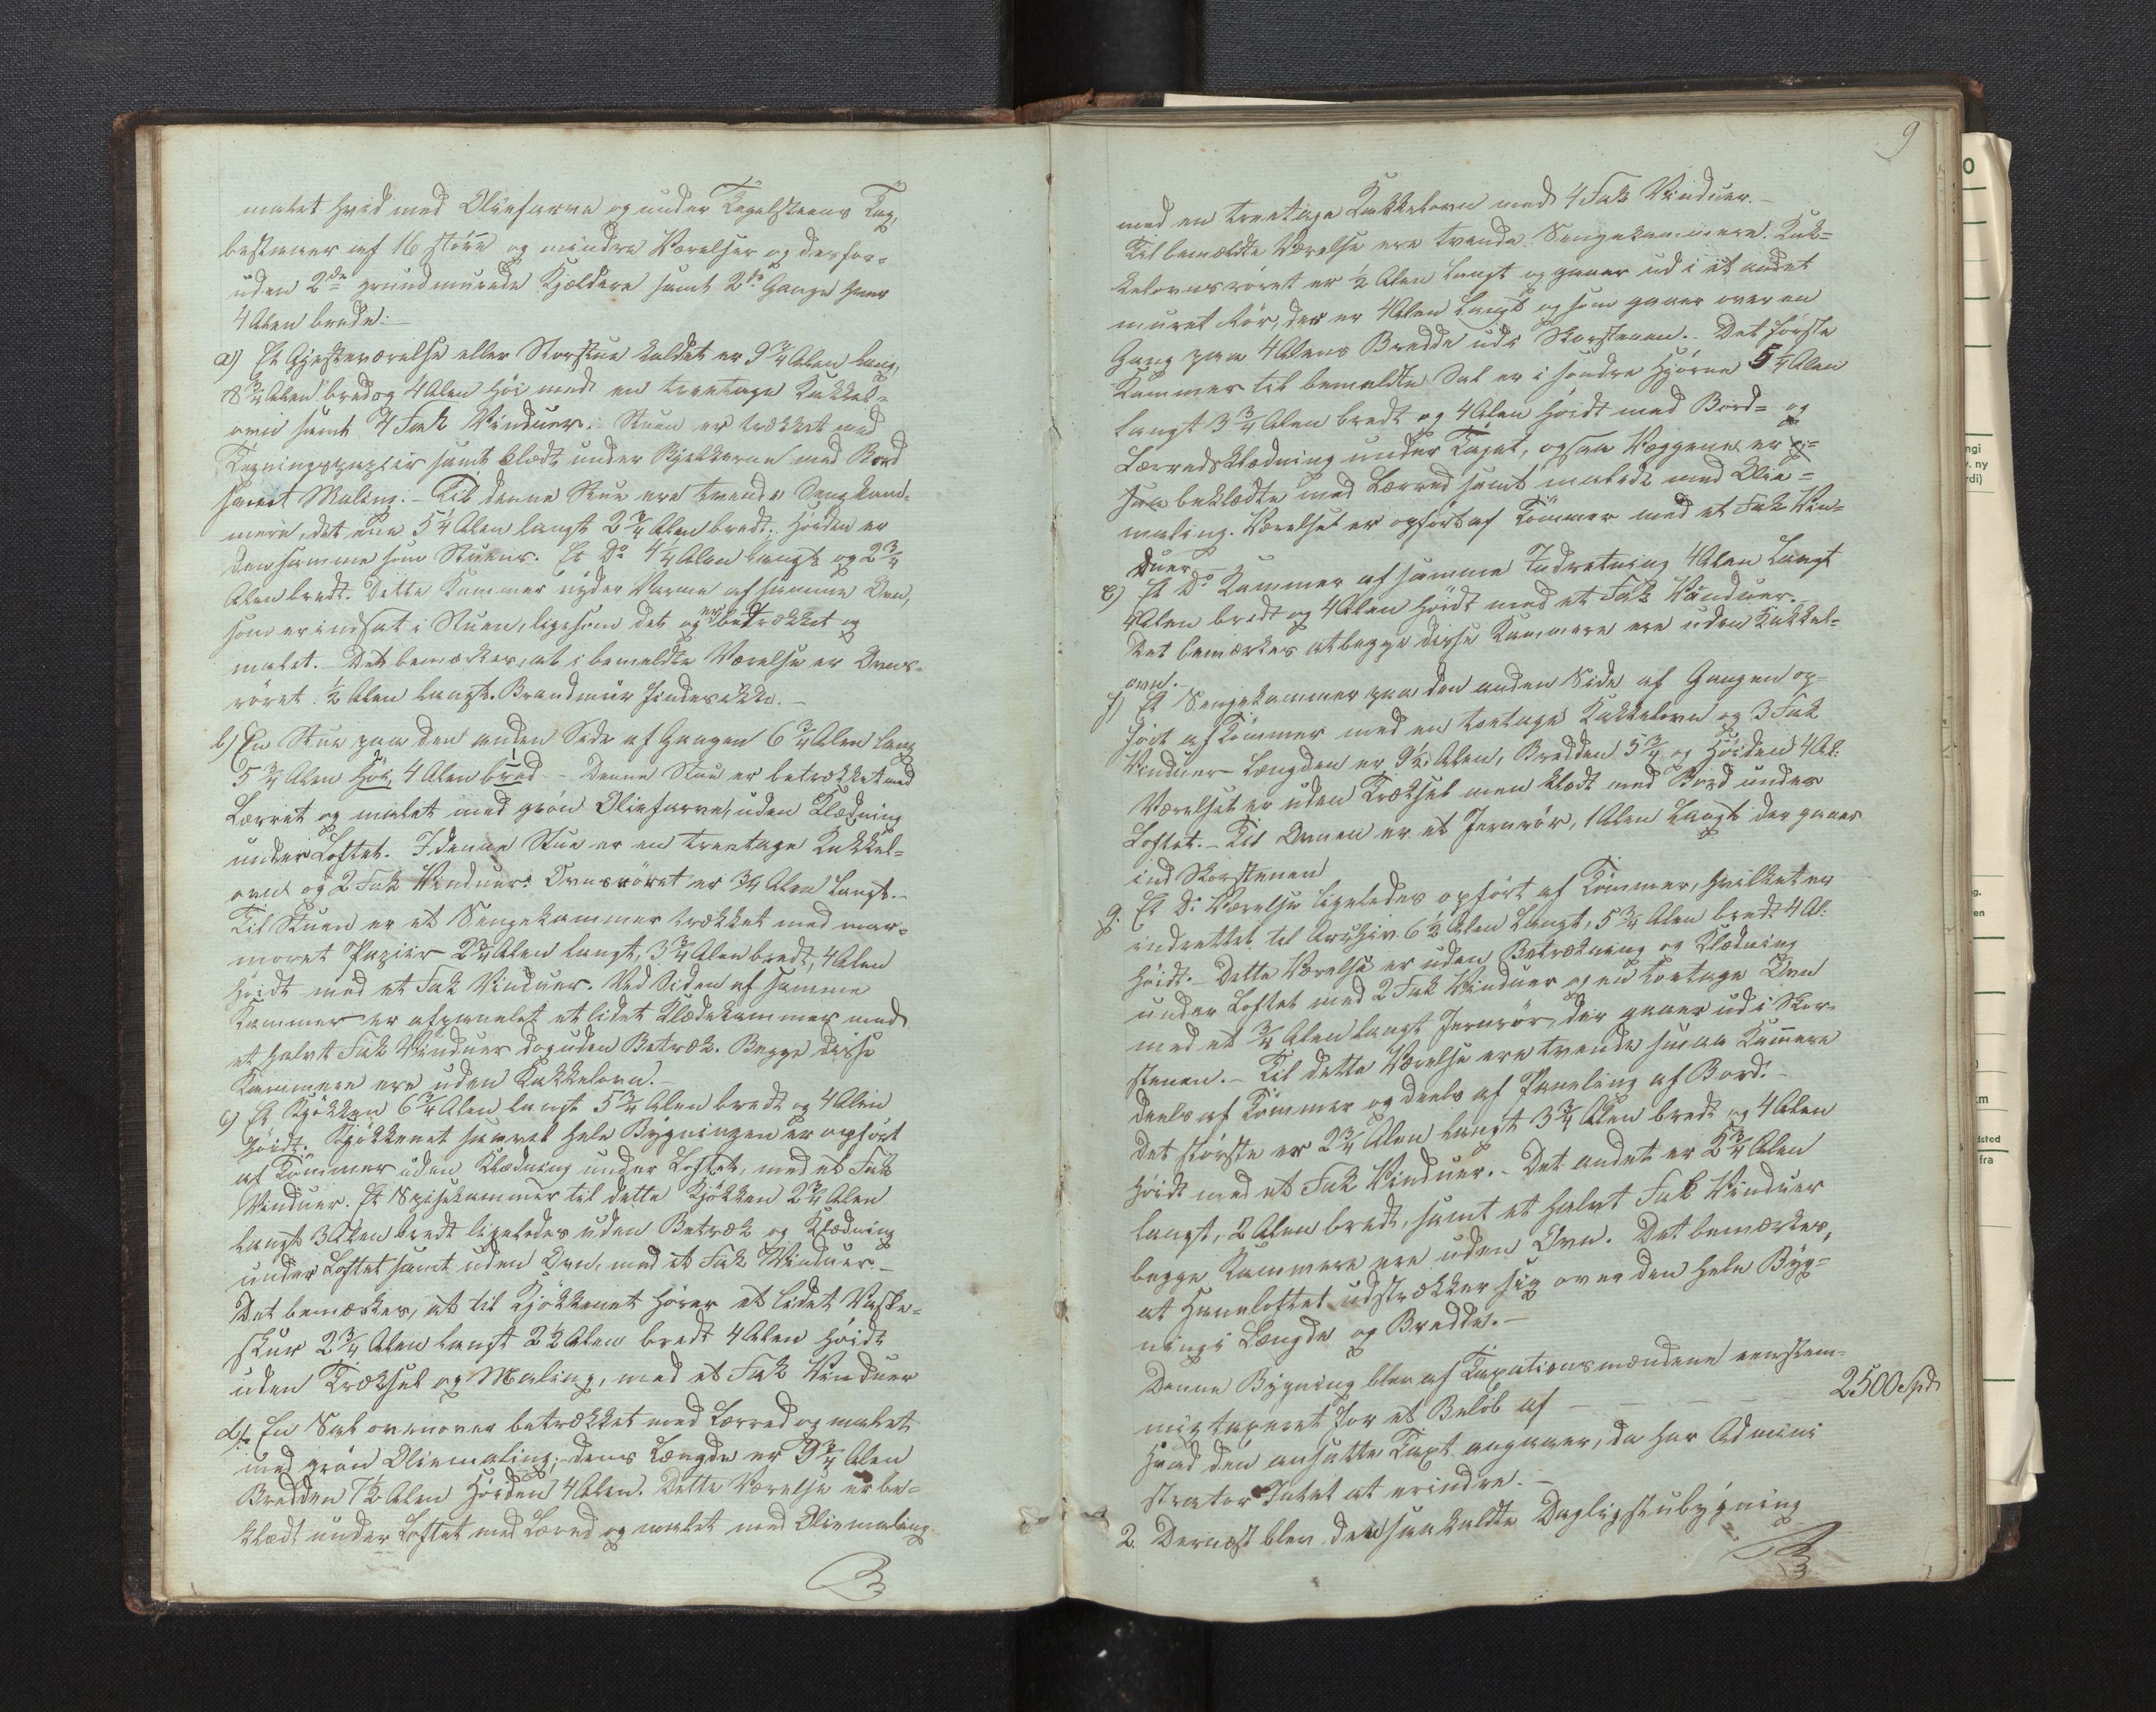 malet hvid med Oliefarve og under Tegelsteens Tag,
bestaaer af 16 större og mindre Værelser og desfor-
uden 2de grundmurede Kjældere samt 2de Gange hver
4 Alen brede:-
a) Et Gjesteværelse eller Storstue kaldet er 9 3/4 Alen lang,
8 3/4 Alen bred og 4 Alen Höi med en treetages Kakkel-
ovn samt 4 Fak Vinduer. Stuen er trækket med
Tegningspapier samt klædt under Bjelkerne med Bord
samt Maling:- Til denne Stue ere tvende Sengkam-
mere, det ene 5 1/4 Alen langt 2 3/4 Alen bredt; Höiden er
den samme som Stuens. Et Do 4 1/4 Alen langt og 2 3/4
Alen bredt. Dette Kammer nyder Varme af samme Ovn,
som er indsat i Stuen, ligesom det og er betrækket og
malet. - Det bemærkes, at i bemeldte Værelse er Ovns-
röret 1/2 Alen langt. Brandmuur findes ikke.-
b) En Stue paa den anden Side af Gangen 6 3/4 Alen lang
5 3/4 Alen Höi 4 Alen bred - Denne Stue er betrækket med
Lærret og malet med grön Oliefarve, uden Klædning
under Loftet. I denne Stue er en treetages Kakkel-
ovn og 2 Fak Vinduer. Ovnsröret er 3/4 Alen langt.-
Til Stuen er et Sengekammer trækket med mar-
moret Papier 2 3/4 Alen langt, 3 3/4 Alen bredt, 4 Alen
höidt med et Fak Vinduer. Ved Siden af samme
Kammer er afpanelet et lidet Klædekammer med
et halvt Fak Vinduer dog uden Betræk. Begge disse
Kammere ere uden Kakkelovn.-
c) Et Kjökken 6 3/4 Alen langt 5 3/4 Alen bredt og 4 Alen
höidt. Kjökkenet samt hele Bygningen er opfört
af Tömmer uden Klædning under Loftet, med et Fak
Vinduer. Et Spisekammer til dette Kjökken 2 3/4 Alen
langt 3 Alen bredt ligeledes uden Betræk og Klædning
under Loftet samt uden Ovn, med et Fak Vinduer.-
Det bemærkes, at til Kjökkenet hörer et lidet Vaske-
skur 2 3/4 Alen langt 2 1/2 Alen bredt 4 Alen höidt
uden Træksel og Maling, med et Fak Vinduer
d). En Sal ovenover betrækket med Lærred og malet
med grön Oliemaling; dens Længde er 9 3/4 Alen
Bredden 7 1/2 Alen Höiden 4 Alen. Dette Værelse er be-
klædt under Loftet med Lærred og malet med Oliemaling
9
med en treetages Kakkelovn med 4 Fak Vinduer.-
Til bemældte Værelse ere tvende Sengekammere. Kak-
kelovnsröret er 1/2 Alen langt og gaaer ud i et andet
muret Rör, der er 4 Alen langt og som gaaer over en
Gang paa 4 Alens Bredde ud i Skorstenen.- Det förste
Kammer til bemeldte Sal er i söndre Hjörne 5 1/4 Alen
langt 3 3/4 Alen bredt og 4 Alen höidt med Bord- og
Lærredsklædning under Taget, ogsaa Væggene er og-
saa beklædte med Lærred samt malede med Olie-
maling. Værelset er opfört af Tömmer med et Fak Vin-
duer.-
e) Et Do Kammer af samme Indretning 4 Alen langt
4 Alen bredt og 4 Alen höidt med et Fak Vinduer.-
Det bemærkes at begge disse Kammere ere uden Kakkel-
ovn.
f) Et Sengekammer paa den anden Side af Gangen op-
fört af Tömmer med en toetages Kakkelovn og 3 Fak
Vinduer Længden er 9 1/2 Alen, Bredden 5 3/4 og Höiden 4 Al:
Værelset er uden Træksel men klædt med Bord under
Loftet.- Til Ovnen er et Jernrör, 1 Alen langt der gaaer
ind Skorstenen
g. Et Do Værelse ligeledes opfört af Tömmer, hvilket er
indrettet til Archiv 6 1/2 Alen langt, 5 3/4 Alen bredt 4 Al:
höidt.- Dette Værelse er uden Betrækning og Klædning
under Loftet med 2 Fak Vinduer og en toetages Ovn
med et 3/4 Alen langt Jernrör, der gaaer ud i Skor-
stenen.- Til dette Værelse ere tvende smaa Kamere
deels af Tömmer og deels af Paneling af Bord.-
Det störste er 2 3/4 Alen langt 3 3/4 Alen bredt og 4 Alen
höidt med et Fak Vinduer.- Det andet er 2 3/4 Alen
langt, 2 Alen bredt, samt et halvt Fak Vinduer
begge Kammere ere uden Ovn. Det bemærkes,
at Haneloftet udstrækker sig over den hele Byg-
nings Længde og Bredde.-
Denne Bygning blev af Taxationsmændene eenstem-
mig taxeret for et Belöb af - - - - 2500 Spd
Hvad den ansatte Taxt angaaer, da har Admini
strator Intet at erindre.-
2. Dernæst blev den saakaldte Dagligstubygning